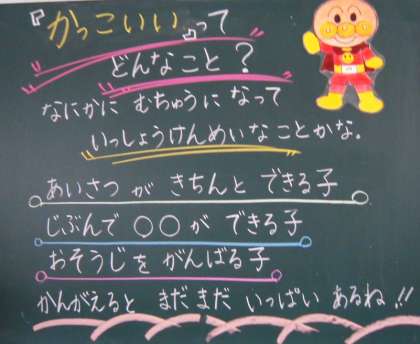 『かっこいい』って
どんなこと？
なにかに むちゅうに なって
いっしょうけんめいな ことかな。
あいさつ が きちんと できる子
じぶんで ○○ が できる子
おそうじを がんばる子
かんがえると まだまだ いっぱい あるね!!